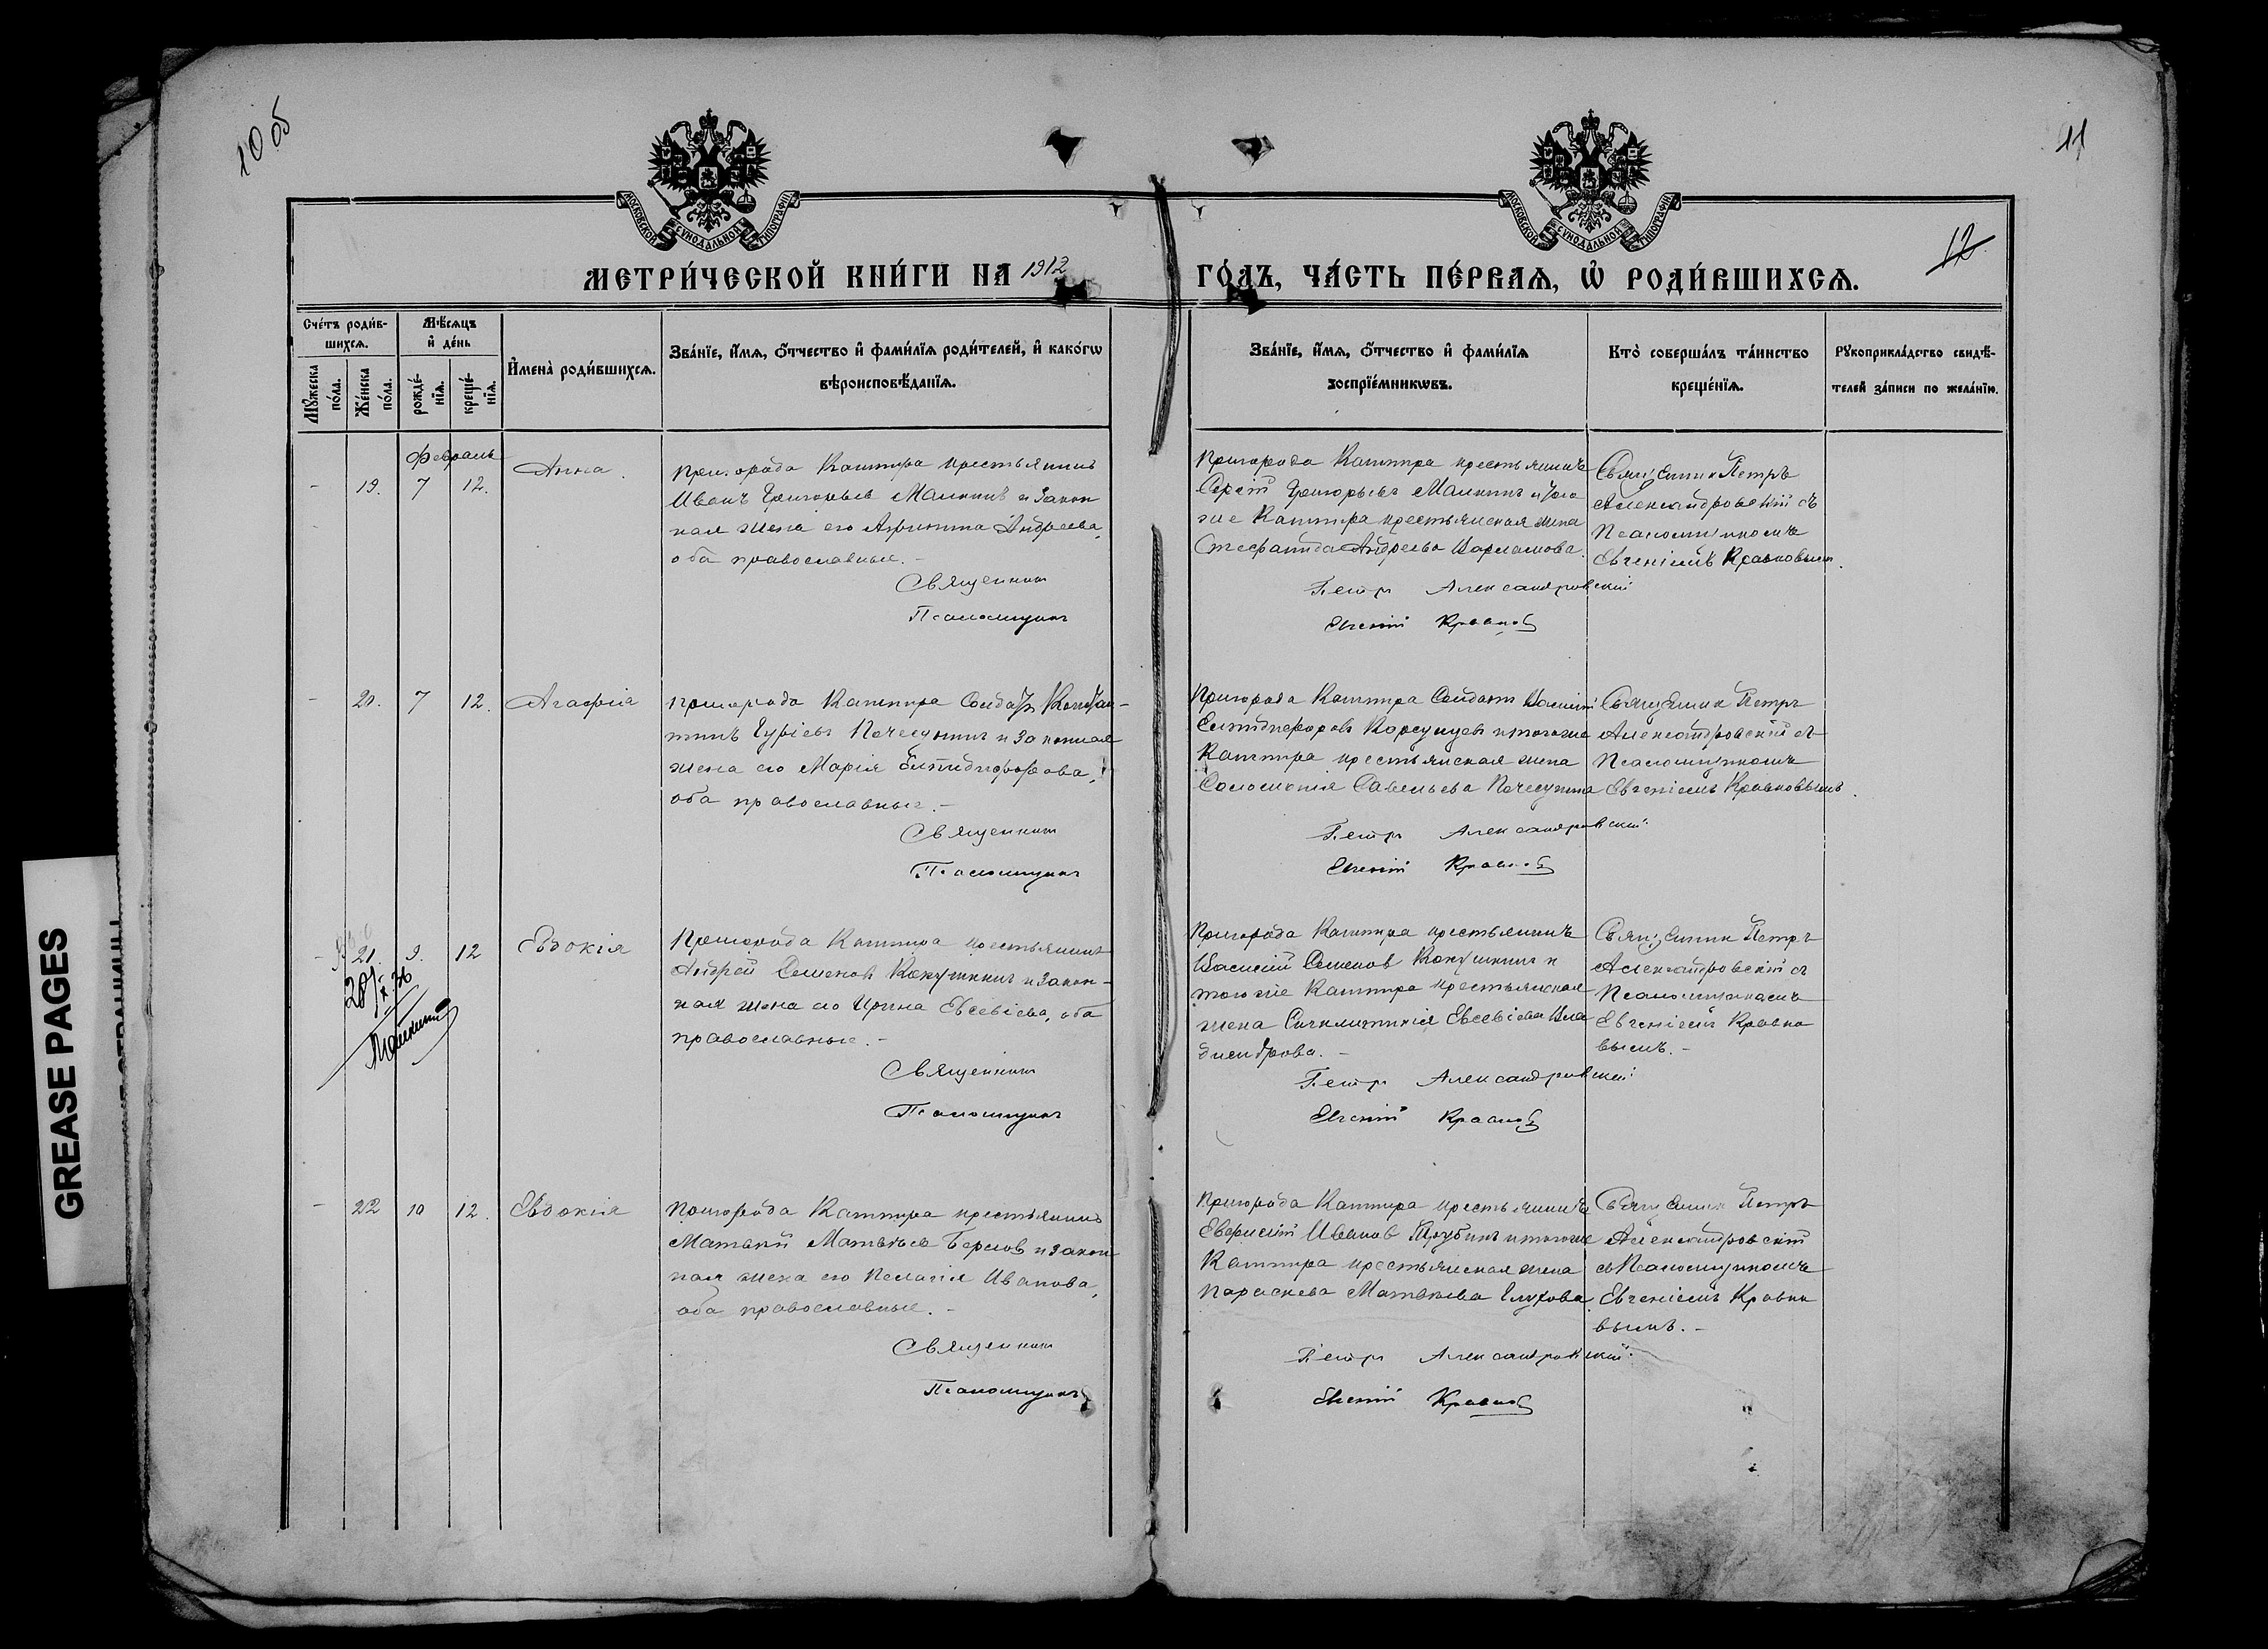 10 об
11
12
МОСКОВСКОЙ СѴНОДАЛЬНОЙ ТИПОГРАФІИ
МОСКОВСКОЙ СѴНОДАЛЬНОЙ ТИПОГРАФІИ
МЕТРИ́ЧЕСКОЙ КНИ́ГИ НА 1912
ГО́ДЪ, ЧА́СТЬ ПЕ́РВАѦ, Ѡ҆ РОДИ́ВШИХСѦ.
Сче́тъ роди́в-
шихсѧ.
Мꙋ́жеска по́ла.
Же́нска по́ла.
Мѣ́сѧцъ
и҆ де́нь
рожде́-нїѧ.
креще́-нїѧ.
И҆мена̀ роди́вшихсѧ.
Зва́нїе, и҆́мѧ, ѻ҆́тчество и҆ фами́лїѧ роди́телей, и҆ како́гѡ
вѣроисповѣ́данїѧ.
Зва́нїе, и҆́мѧ, ѻ҆́тчество и҆ фами́лїѧ
воспрїе́мникѡвъ.
Кто̀ соверша́лъ та́инство
креще́нїѧ.
Рꙋкоприкла́дство свидѣ́-
телей за́писи по жела́нїю.
Февраль
- 19. 7 12. Анна.
Пригорода Каштира крестьянинъ
Иванъ Григорьевъ Малкинъ и закон
ная жена его Андреева,
оба православные. -
Священникъ
Псаломщикъ
Пригорода Каштира крестьянинъ
Сергій Григорьевъ Малкинъ и того
же Каштира крестьянская жена
Стефанида Андреева Варламова.
Петръ Александровскій
Евгеній Кравковъ
Священникъ Петръ
Александровскій съ
Псаломщикомъ
Евгеніемъ Кравковымъ.
- 20. 7 12. Агафія
Пригорода Каштира Солдатъ Констан-
тинъ Гуріевъ и законная
жена его Марія Епидифорова,
оба православные. -
Священникъ
Псаломщикъ
Пригорода Каштира Солдатъ Василій
Епидифоровъ Корсунцевъ и того же
Каштира крестьянская жена
Соломонія Савельева
Петръ Александровскій
Евгеній Кравковъ
Священникъ Петръ
Александровскій съ
Псаломщикомъ
Евгеніемъ Кравковымъ.
- 21. 9. 12 Евдокія
Пригорода Каштира крестьянинъ
Андрей Семеновъ Кокушкинъ и закон-
ная жена его Ирина Евсевіева, оба
православные. -
Священникъ
Псаломщикъ
Пригорода Каштира крестьянинъ
Василій Семеновъ Кокушкинъ и
того же Каштира крестьянская
жена Синклитикія Евсевіева
Петръ Александровскій
Евгеній Кравковъ
Священникъ Петръ
Александровскій съ
Псаломщикомъ
Евгеніемъ Кравко
вымъ. -
- 22 10 12. Евдокія
Пригорода Каштира крестьянинъ
Матвѣй Матвѣевъ и закон
ная жена его Пелагія Иванова,
оба православные. -
Священникъ
Псаломщикъ
Пригорода Каштира крестьянинъ
Ивановъ Трубинъ и того же
Каштира крестьянская жена
Параскева Матвѣева Глухова.
Петръ Александровскій
Евгеній Кравковъ
Священникъ Петръ
Александровскій
съ Псаломщикомъ
Евгеніемъ Кравко
вымъ. -
GREASE PAGES